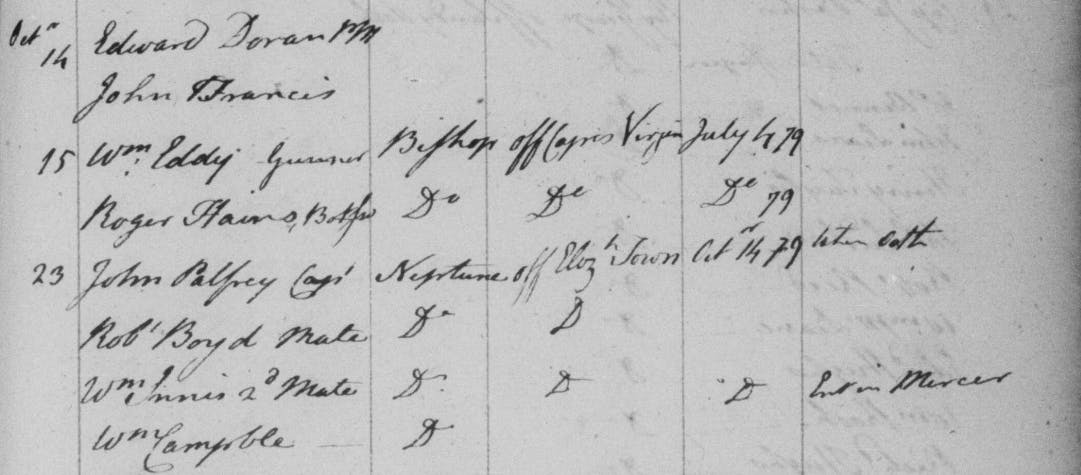 Octr 14 Edward Doran
John Francis
15 Wm. Eddy Gunner Bishop off Capes Virgin July 4 79
Roger Hains Do Do Do 79
23 John Palfrey Capt Neptune off Elizh Town Octr 14 79 taken oath
Robt Boyd Mate Do D
Wm Innis 2d Mate D. D D Ent in Mercer
Wm Campble — D